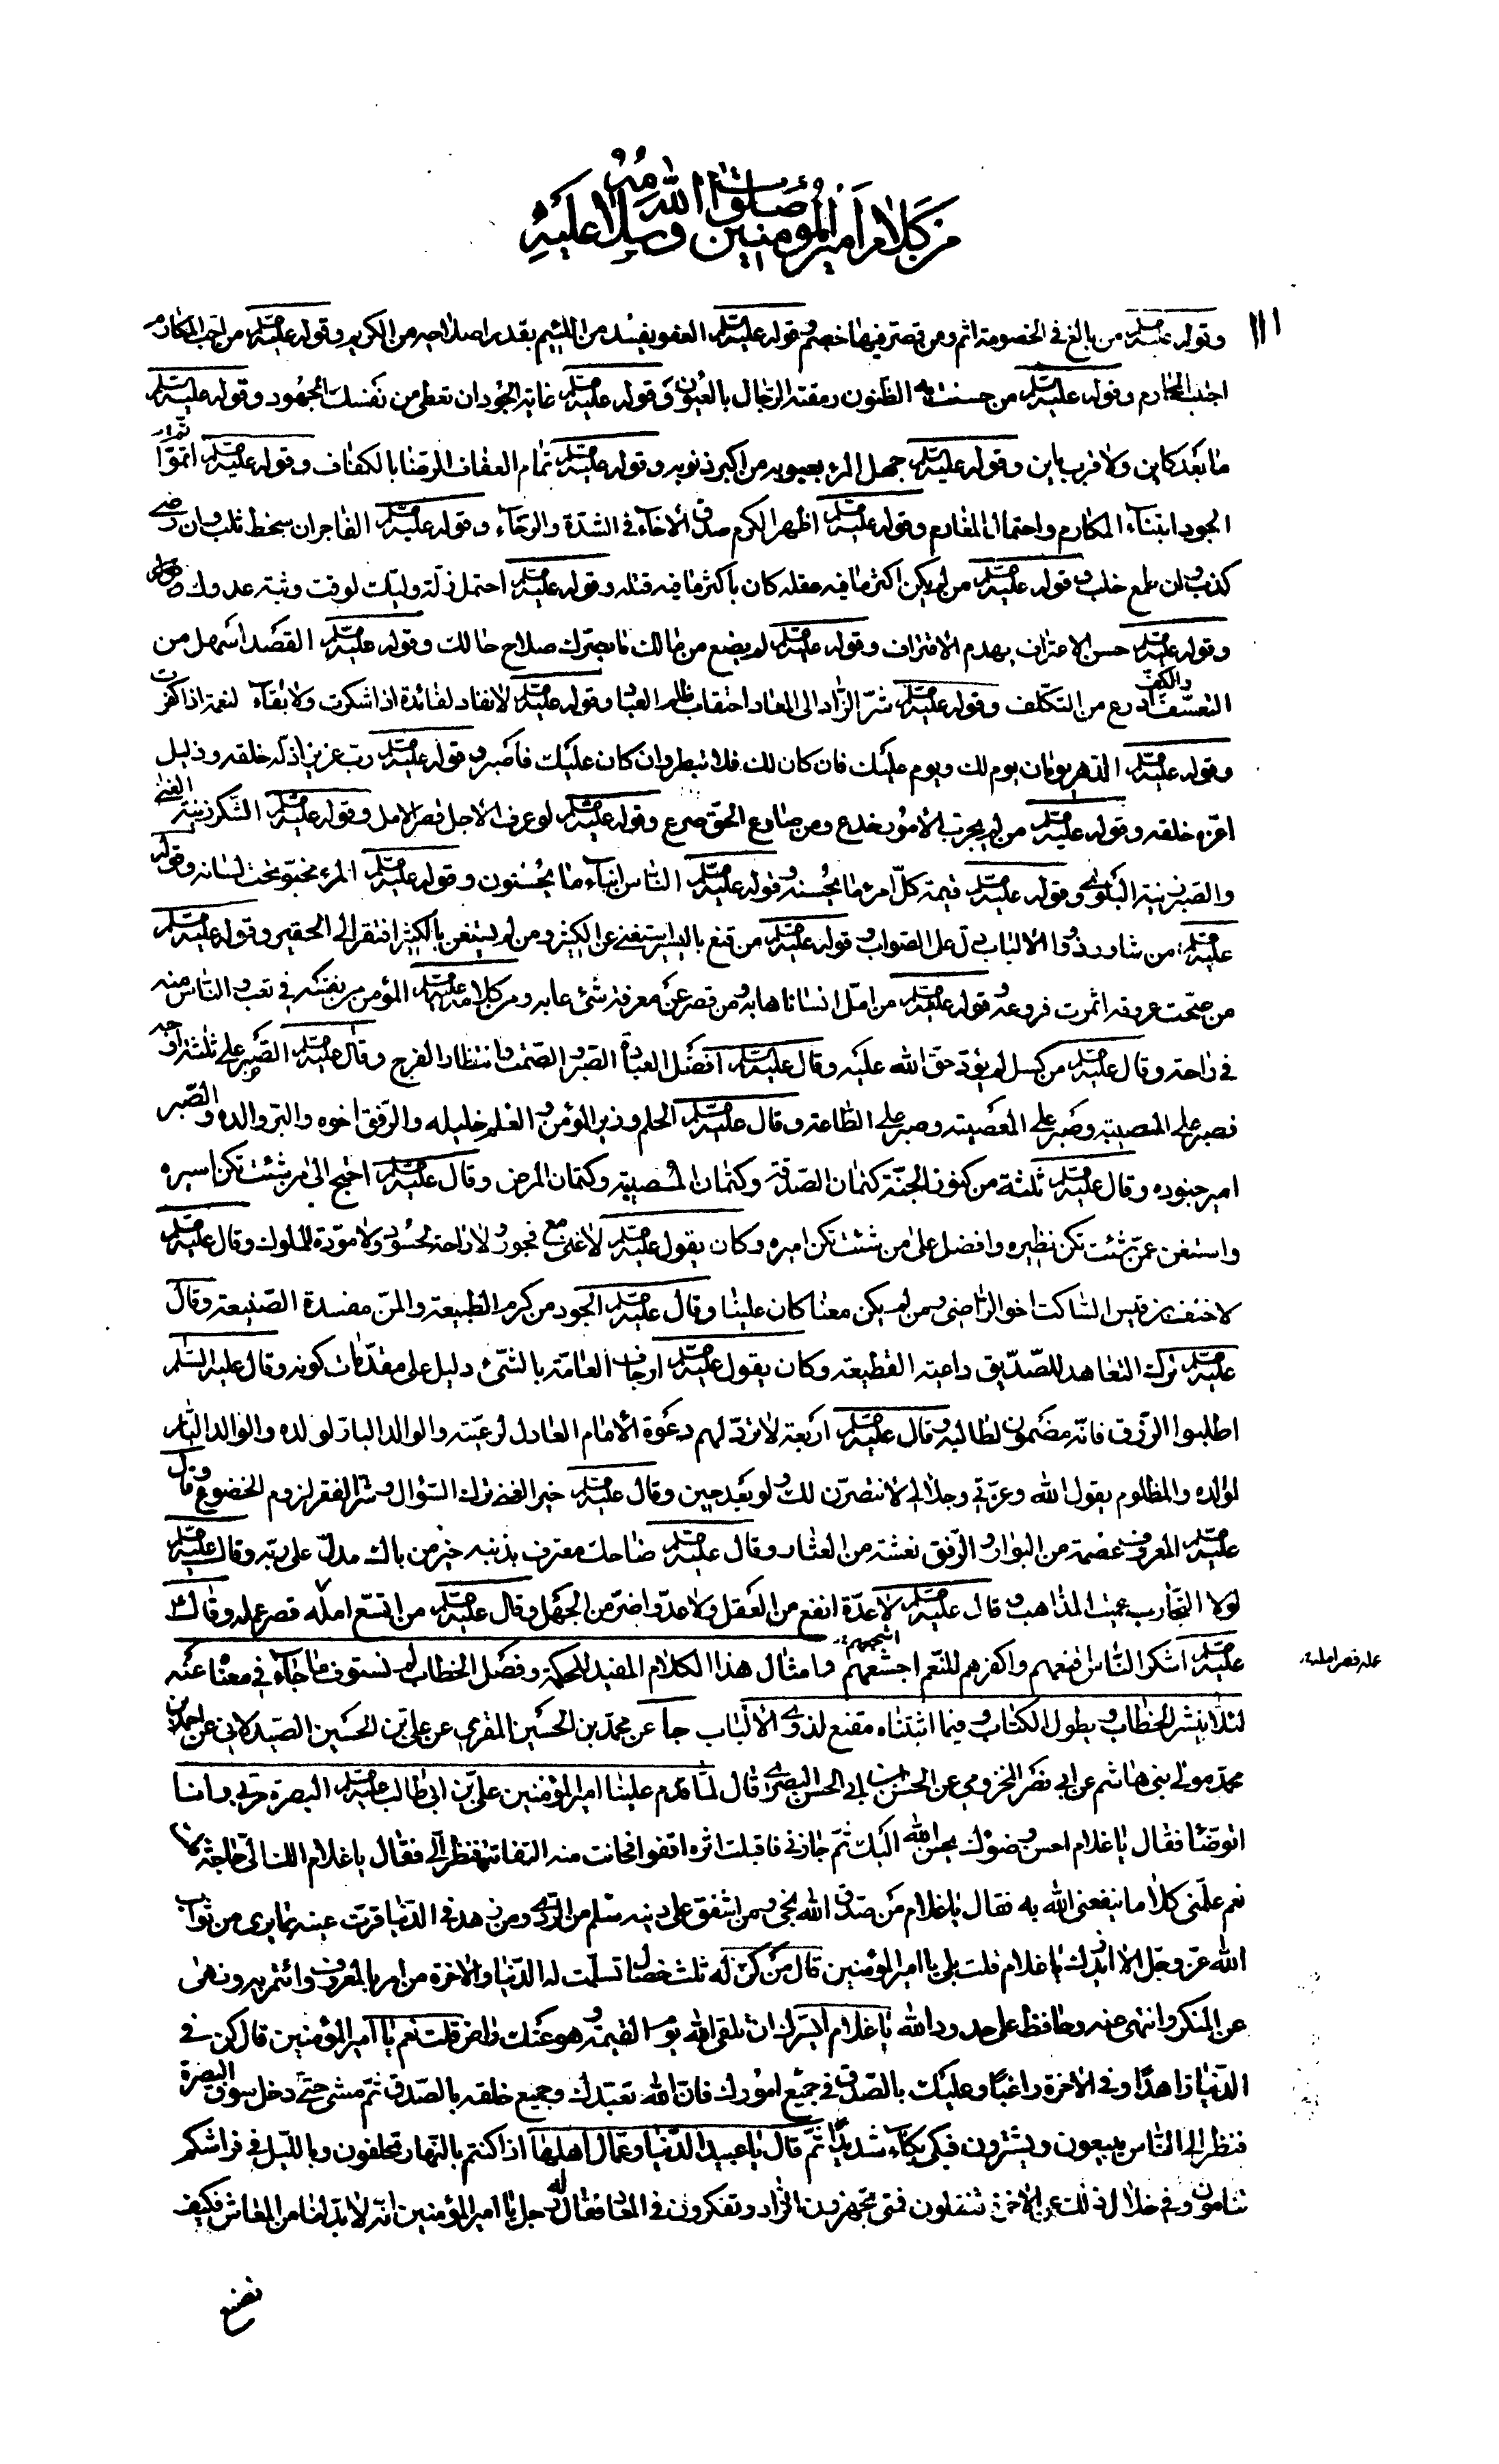 من كلام أمير المؤمنين صلوات الله وسلامه عليه
١١١
وقوله عليه السلم من بالغ في الخصومة اثم ومن قصر فيها خصم وقوله عليه السلم العفو يفسد من اللئيم بقدر اصلاحه من الكريم وقوله عليه السلم من احب المكارم
اجتنب المحارم وقوله عليه السلم من حسنت به الظنون رمقته الرجال بالعيون وقوله عليه السلم غاية الجود ان تعطي من نفسك المجهود وقوله عليه السلم
ما بعد كاين ولا قرب باين وقوله عليه السلم جهل المرء بعيوبه من اكبر ذنوبه وقوله عليه السلم تمام العفاف الرضا بالكفاف وقوله عليه السلم اتموا
الجود ابتناء المكارم واحتمال المغارم وقوله عليه السلم اظهر الكرم صدق الاخاء في الشدة والرخاء وقوله عليه السلم الفاجر ان سخط ثلب وان رضي
كذب وان طمع خلب وقوله عليه السلم من لم يكن اكثر ما فيه عقله كان باكثر ما فيه قتله وقوله عليه السلم احتمل زلة وليك لوقت وثبة عدوك
وقوله عليه السلم حسن الاعتراف يهدم الاقتراف وقوله عليه السلم لم يضع من مالك ما بصرك صلاح حالك وقوله عليه السلم القصد اسهل من
التعسف والكف ادرع من التكلف وقوله عليه السلم شر الزاد الى المعاد احتقاب ظلم العباد وقوله عليه السلم لا نفاد لفائدة اذا شكرت ولا بقاء لنعمة اذا كفرت
وقوله عليه السلم الدهر يومان يوم لك ويوم عليك فان كان لك فلا تبطر وان كان عليك فاصبر وقوله عليه السلم رب عزيز اذله خلقه وذليل
اعزه خلقه وقوله عليه السلم من لم يجرب الامور خدع ومن صارع الحق صرع وقوله عليه السلم لو عرف الاجل قصر الامل وقوله عليه السلم الشكر زينة الغنى
والصبر زينة البلوى وقوله عليه السلم قيمة كل امرء ما يحسنه وقوله عليه السلم الناس ابناء ما يحسنون وقوله عليه السلم المرء مخبو تحت لسانه وقوله
عليه السلم من شاور ذوى الالباب دل على الصواب وقوله عليه السلم من قنع باليسير استغنى عن الكثير ومن لم يستغن بالكثير افتقر الى الحقير وقوله عليه السلم
من صحت عروقه اثمرت فروعه وقوله عليه السلم من امل انسانا هابه ومن قصر عن معرفة شئ عابه ومن كلامه عليه السلم المؤمن من نفسه في تعب والناس منه
في راحة وقال عليه السلم من كسل لم يؤد حق الله عليه وقال عليه السلم افضل العبادة الصبر والصمت وانتظار الفرج وقال عليه السلم الصبر على ثلثة اوجه
فصبر على المصيبة وصبر على المعصية وصبر على الطاعة وقال عليه السلم الحلم وزير المؤمن والعلم خليله والرفق اخوه والبر والده والصبر
امير جنوده وقال عليه السلم ثلثة من كنوز الجنة كتمان الصدقة وكتمان المصيبة وكتمان المرض وقال عليه السلم احتج الى من شئت تكن اسيره
واستغن عمن شئت تكن نظيره وافضل على من شئت تكن اميره وكان يقول عليه السلم لا غنى مع فجور ولا راحة لحسود ولا مودة للملوك وقال عليه السلم
لاحنف بن قيس الساكت اخو الراضي ومن لم يكن معنا كان علينا وقال عليه السلم الجود من كرم الطبيعة والمن مفسدة الصنيعة وقال
عليه السلم ترك التعاهد للصديق داعية القطيعة وكان يقول عليه السلم ارجاف العامة بالشئ دليل على مقدمات كونه وقال عليه السلم
اطلبوا الرزق فانه مضمون لطالبه وقال عليه السلم اربعة لا ترد لهم دعوة الامام العادل لرعيته والوالد البار لولده والولد البار
لوالده والمظلوم يقول الله وعزتي وجلالي لانتصرن لك ولو بعد حين وقال عليه السلم خير الغنى ترك السؤال وشر الفقر لزوم الخضوع وقال
عليه السلم المعروف عصمة من البوار والرفق نعشة من العثار وقال عليه السلم ضاحك معترف بذنبه خير من باك مدل على ربه وقال عليه السلم
لولا التجارب عميت المذاهب وقال عليه السلم لا عدة انفع من العقل ولا عدو اضر من الجهل وقال عليه السلم من اتسع امله قصر عمله وقال
عليه السلم اشكر الناس اقنعهم واكفرهم للنعم اجشعهم وامثال هذا الكلام المفيد للحكمة وفصل الخطاب لم نستوف ما جاء في معناه عنه
لئلا ينتشر الخطاب ويطول الكتاب وفيما اثبتناه مقنع لذوي الالباب جا عن محمد بن الحسين المقري عن علي بن الحسين الصيدلاني عن احمد بن
محمد مولى بني هاشم عن ابي نصر المخزومي عن الحسن بن ابي الحسن البصري قال لما قدم علينا امير المؤمنين علي بن ابي طالب عليه السلم البصرة مر بي وانا
اتوضأ فقال يا غلام احسن وضوئك يحسن الله اليك ثم جازني فاقبلت اثره اقفوا فحانت منه التفاتة فنظر الي فقال يا غلام الك الي حاجة قلت
نعم علمني كلاما ينفعني الله به فقال يا غلام من صدق الله نجى ومن اشفق على دينه سلم من الردى ومن زهد في الدنيا قرت عينه بما يرى من ثواب
الله عز وجل الا ازيدك يا غلام قلت بلى يا امير المؤمنين قال من كن له ثلث خصال سلمت له الدنيا والاخرة من امر بالمعروف وائتمر به ونهى
عن المنكر وانتهى عنه وحافظ على حدود الله يا غلام ايسرك ان تلقى الله يوم القيمة وهو عنك راض قلت نعم يا امير المؤمنين قال كن في
الدنيا زاهدا وفي الاخرة راغبا وعليك بالصدق في جميع امورك فان الله تعبدك وجميع خلقه بالصدق ثم مشى حتى دخل سوق البصرة
فنظر الى الناس يبيعون ويشترون فبكى بكاء شديدا ثم قال يا عبيد الدنيا وعمال اهلها اذا كنتم بالنهار تحلفون وبالليل في فراشكم
تنامون وفي خلال ذلك عن الاخرة تغفلون فمتى تجهزون الزاد وتفكرون في المعاد فقال له رجل يا امير المؤمنين انه لا بد لنا من المعاش فكيف
نصنع